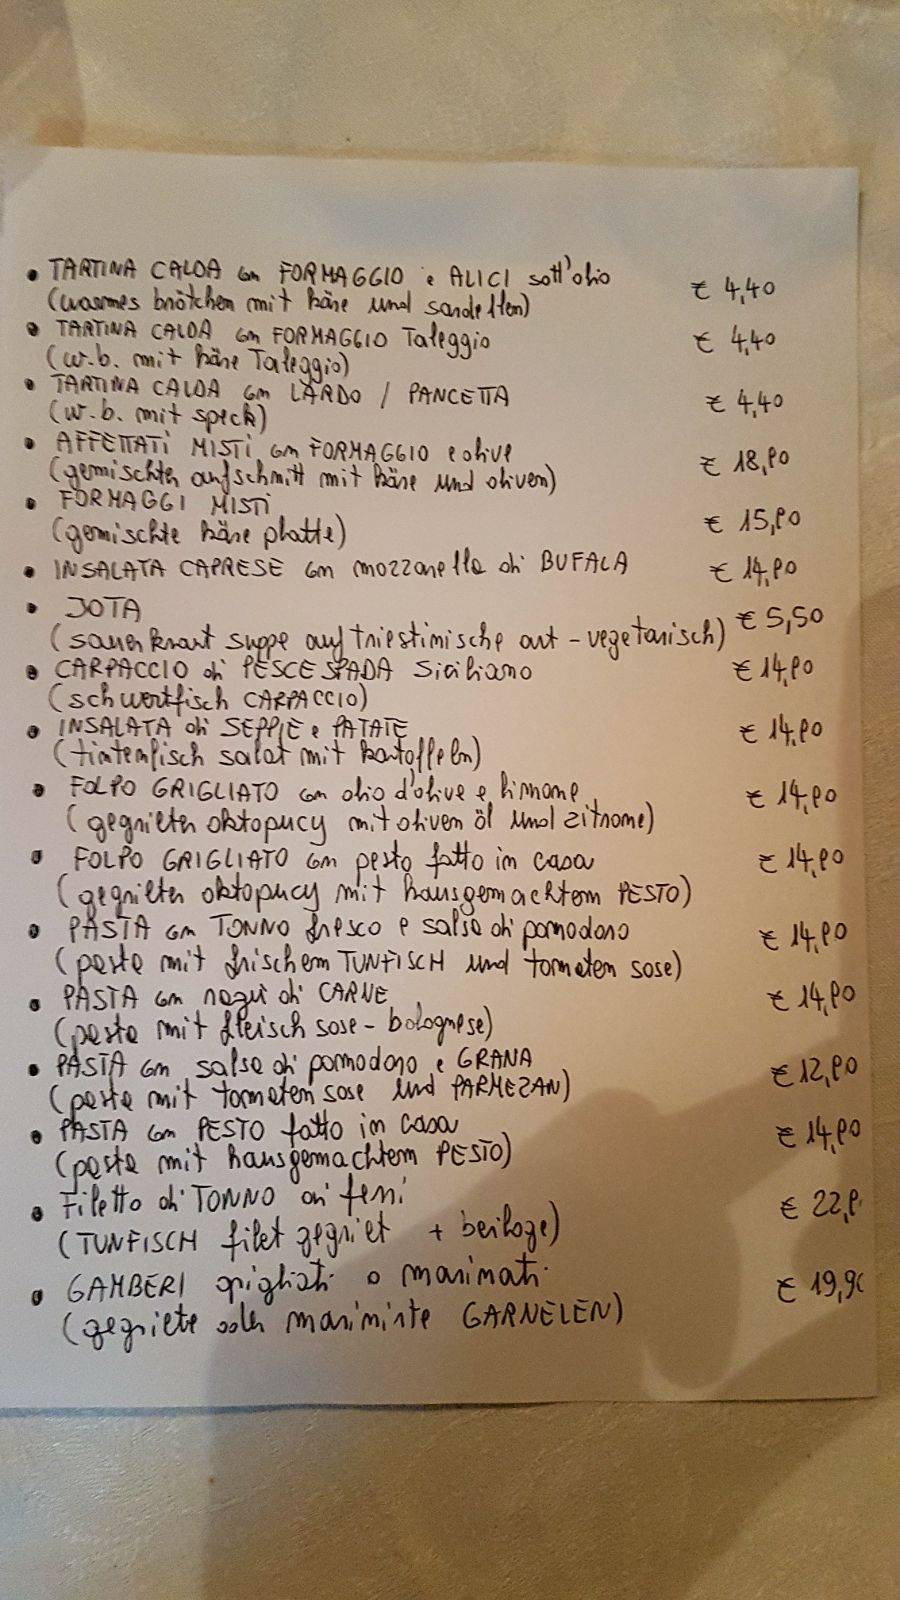 • TARTINA CALDA con FORMAGGIO e ALICI sott'olio € 4,40
(warmes brötchen mit käse und sardellen)
• TARTINA CALDA con FORMAGGIO Taleggio € 4,40
(w.b. mit käse Taleggio)
• TARTINA CALDA con LARDO / PANCETTA € 4,40
(w.b. mit speck)
• AFFETTATI MISTI con FORMAGGIO e olive € 18,90
(gemischter aufschnitt mit käse und oliven)
• FORMAGGI MISTI € 15,90
(gemischte käse platte)
• INSALATA CAPRESE con mozzarella di BUFALA € 14,90
• JOTA € 5,50
(sauerkraut suppe auf triestinische art - vegetarisch)
• CARPACCIO di PESCE SPADA Siciliano € 14,90
(schwertfisch CARPACCIO)
• INSALATA di SEPPIE e PATATE € 14,90
(tintenfisch salat mit kartoffeln)
• FOLPO GRIGLIATO con olio d'olive e limone € 14,90
(gegrillter oktopucy mit oliven öl und zitrone)
• FOLPO GRIGLIATO con pesto fatto in casa € 14,90
(gegrillter oktopucy mit hausgemachtem PESTO)
• PASTA con TONNO fresco e salsa di pomodoro € 14,90
(pasta mit frischem TUNFISCH und tomaten sose)
• PASTA con ragù di CARNE € 14,90
(pasta mit fleisch sose - bolognese)
• PASTA con salsa di pomodoro e GRANA € 12,90
(pasta mit tomaten sose und PARMEZAN)
• PASTA con PESTO fatto in casa € 14,90
(pasta mit hausgemachtem PESTO)
• Filetto di TONNO ai ferri € 22,9
(TUNFISCH filet gegriet + beilage)
• GAMBERI grigliati o marinati € 19,90
(gegriete oder marinirte GARNELEN)